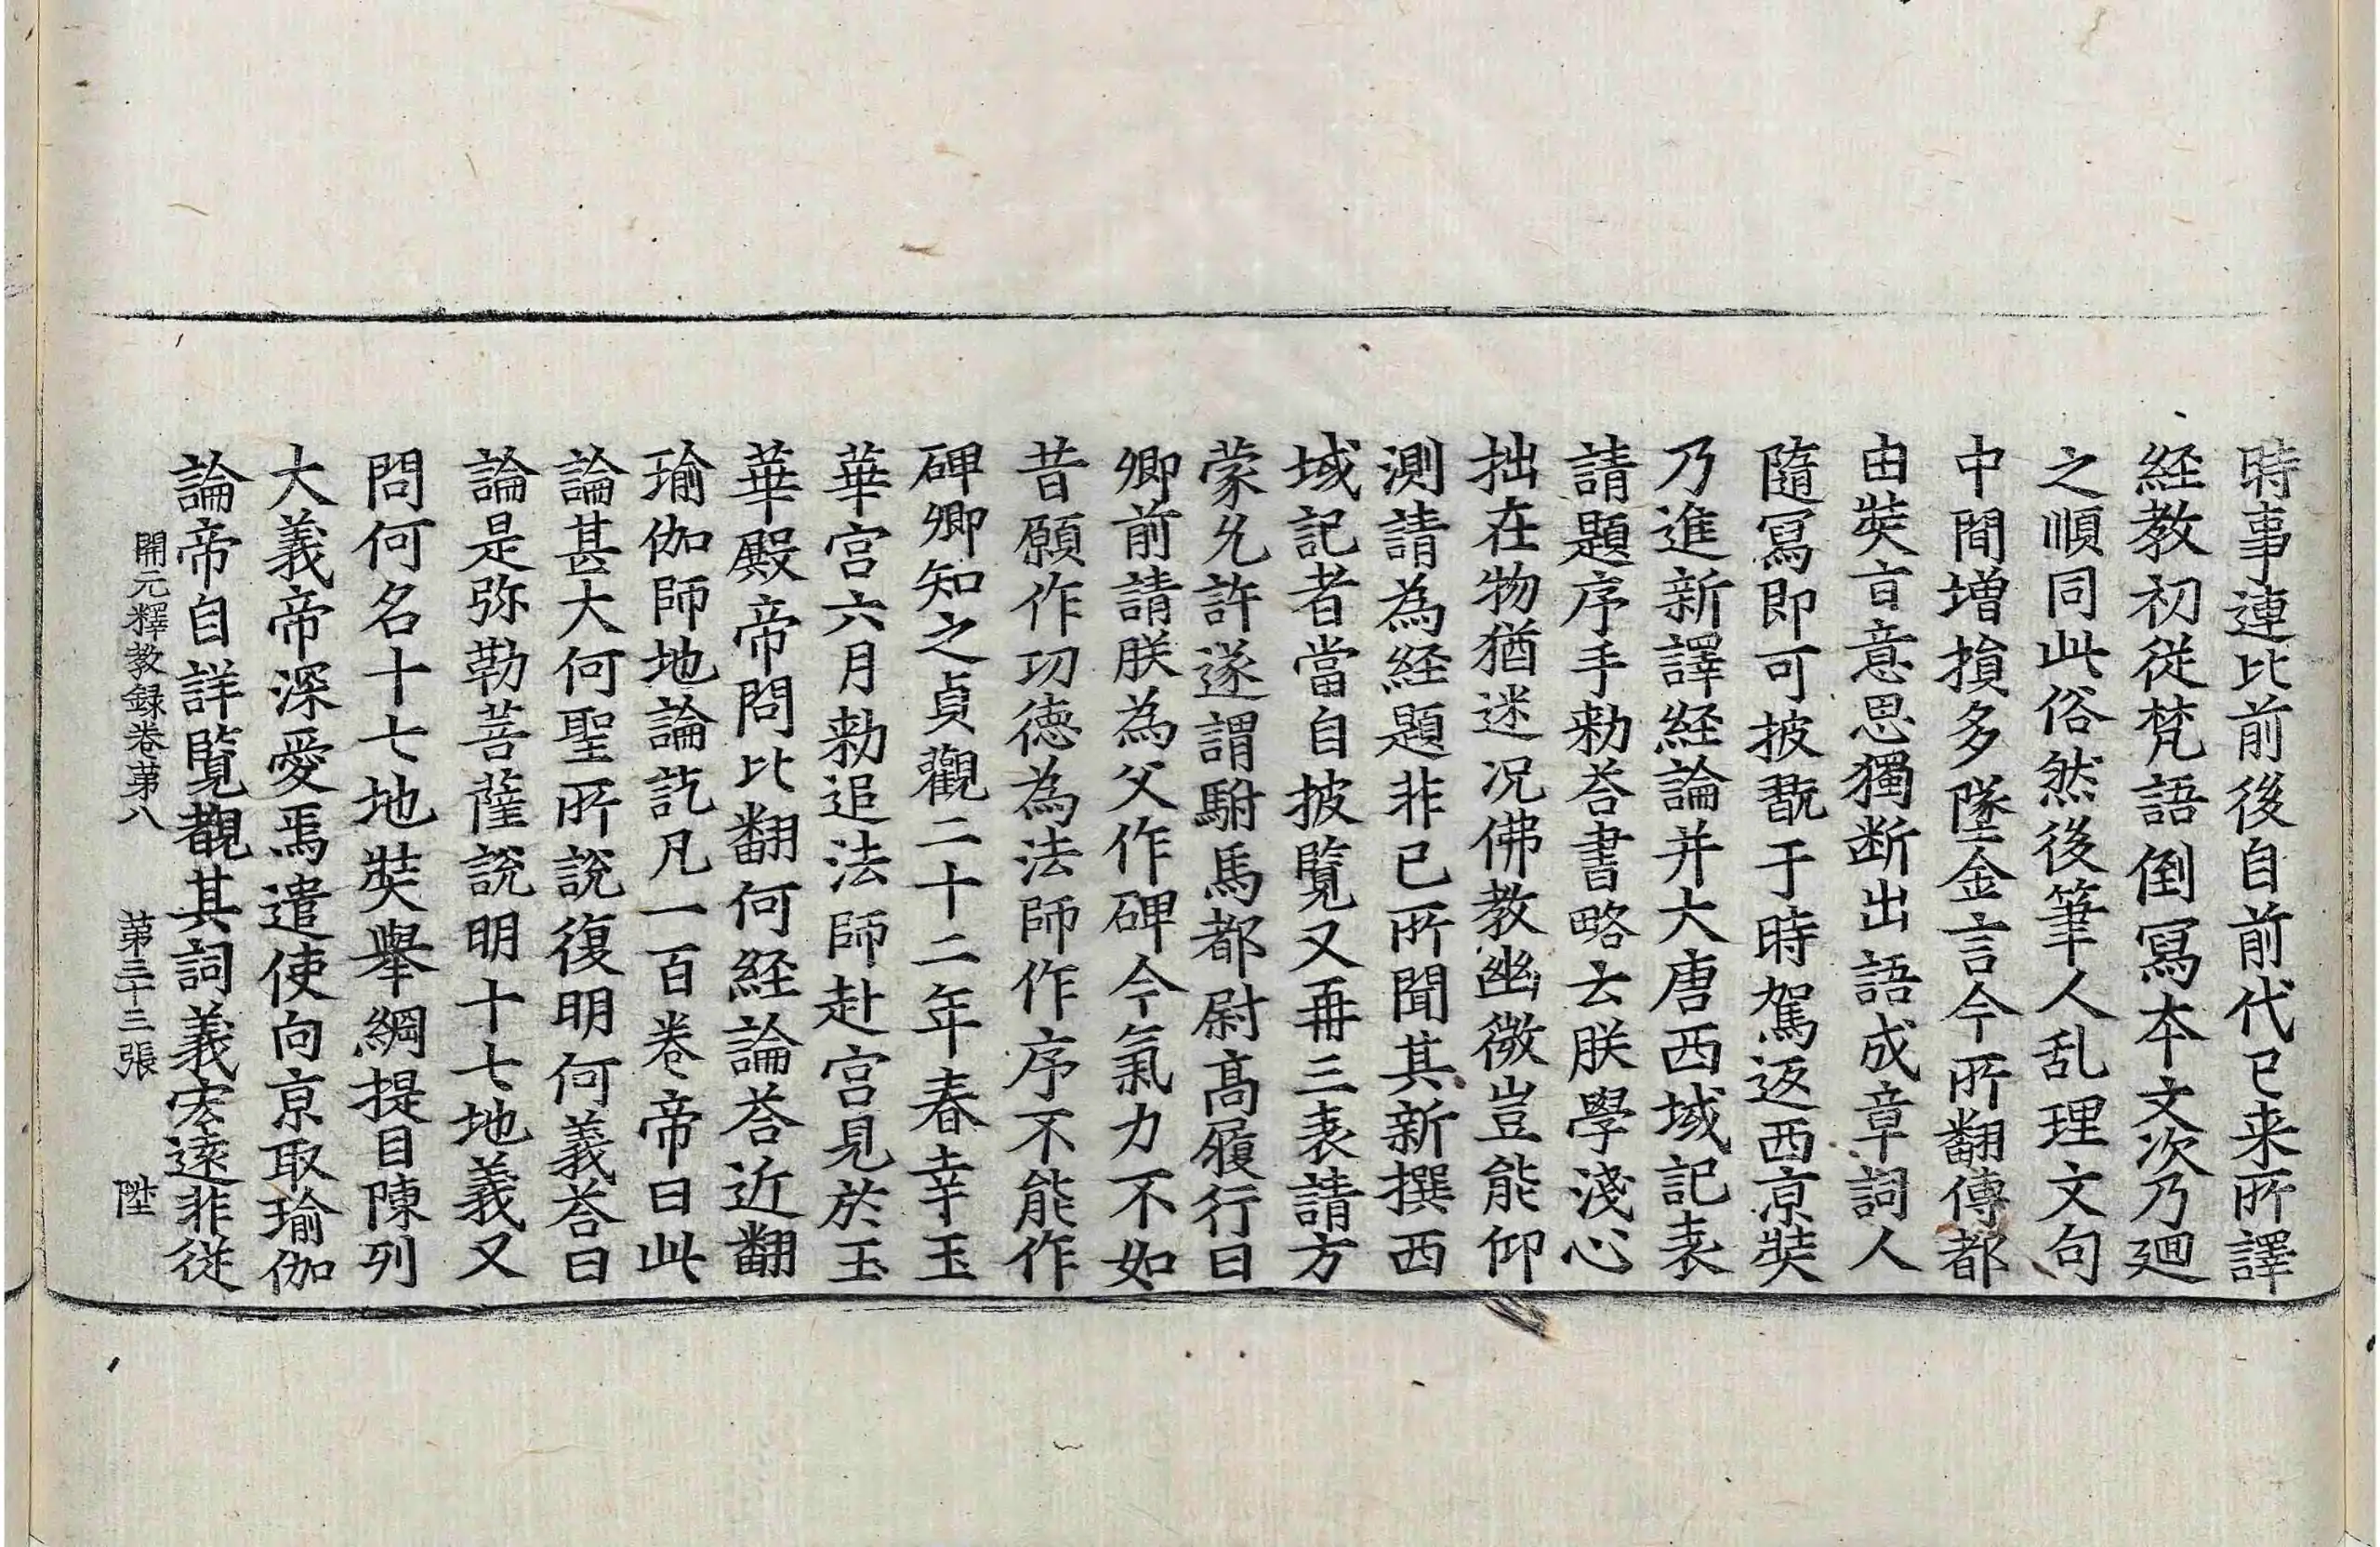 時事連比前後自前代已来所譯
経教初從梵語倒寫夲文次乃廻
之順同此俗然後筆人乱理文句
中間增損多墜金言今所翻傳都
由奘言意思獨断出語成章詞人
隨寫即可披翫于時駕返西京奘
乃進新譯経論并大唐西域記表
請題序手勑荅書略云朕學淺心
拙在物猶迷況佛教幽微豈能仰
測請為経題非已所聞其新撰西
域記者當自披覽又再三表請方
蒙允許遂謂駙馬都尉髙履行曰
卿前請朕為父作碑今氣力不如
昔願作功徳為法師作序不能作
碑卿知之貞觀二十二年春幸玉
華宮六月勑追法師赴宮見於玉
華殿帝問比翻何経論荅近翻
瑜伽師地論訖凡一百卷帝曰此
論甚大何聖所說復明何義荅曰
論是弥勒菩薩說明十七地義又
問何名十七地奘舉綱提目陳列
大義帝深愛焉遣使向京取瑜伽
論帝自詳覽覩其詞義宏遠非従
開元釋教録卷苐八 苐三十三張 陞